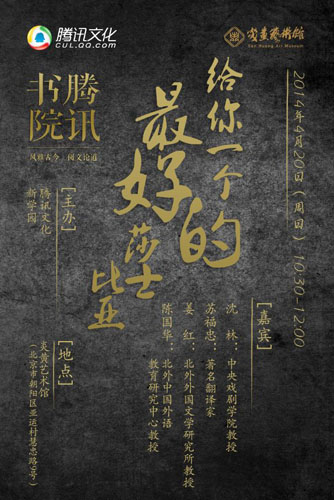 腾讯文化
CUL.QQ.COM
炎黄艺术馆
Yan Huang Art Museum
腾讯
书院
风雅古今 阅文论道
2014年4月20日（周日） 10:30-12:00
给你一个
最好的
莎士
比亚
[嘉宾]
沈 林：中央戏剧学院教授
苏福忠：著名翻译家
姜 红：北外外国文学研究所教授
陈国华：北外中国外语
教育研究中心教授
[主办]
腾讯文化
新学园
[地点]
炎黄艺术馆
（北京市朝阳区亚运村慧忠路9号）